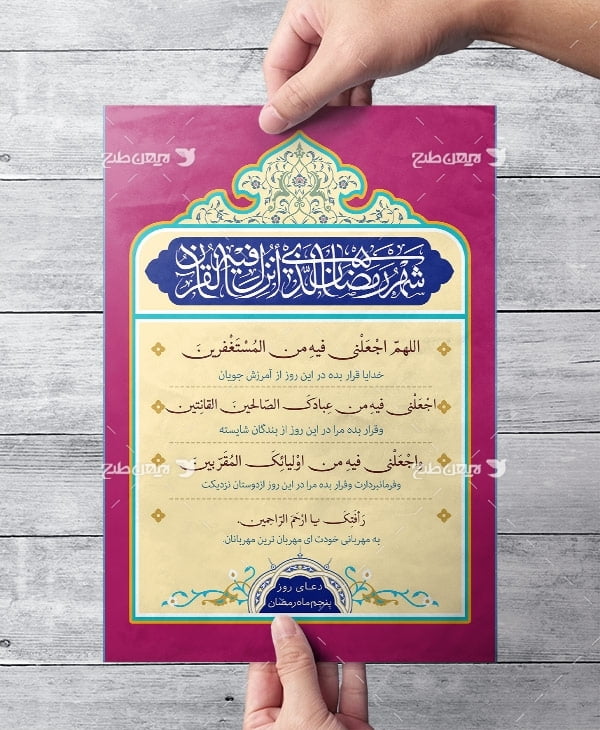 شهر رمضان الذي أنزل فيه القرآن
اللهمّ اجْعَلْنی فیهِ من المُسْتَغْفرینَ
خدایا قرار بده در این روز از آمرزش جویان
اجْعَلْنی فیهِ من عِبادکَ الصّالحینَ القانِتین
وقرار بده مرا در این روز از بندگان شایسته
واجْعَلْنی فیهِ من اوْلیائِکَ المُقَرّبینَ
وفرمانبردارت وقرار بده مرا در این روز ازدوستان نزدیکت
رَأفَتِکَ یا ارْحَمَ الرّاحِمین.
به مهربانی خودت ای مهربان ترین مهربانان.
دعای روز
پنجم ماه رمضان
میهن طرح
میهن طرح
میهن طرح
میهن طرح